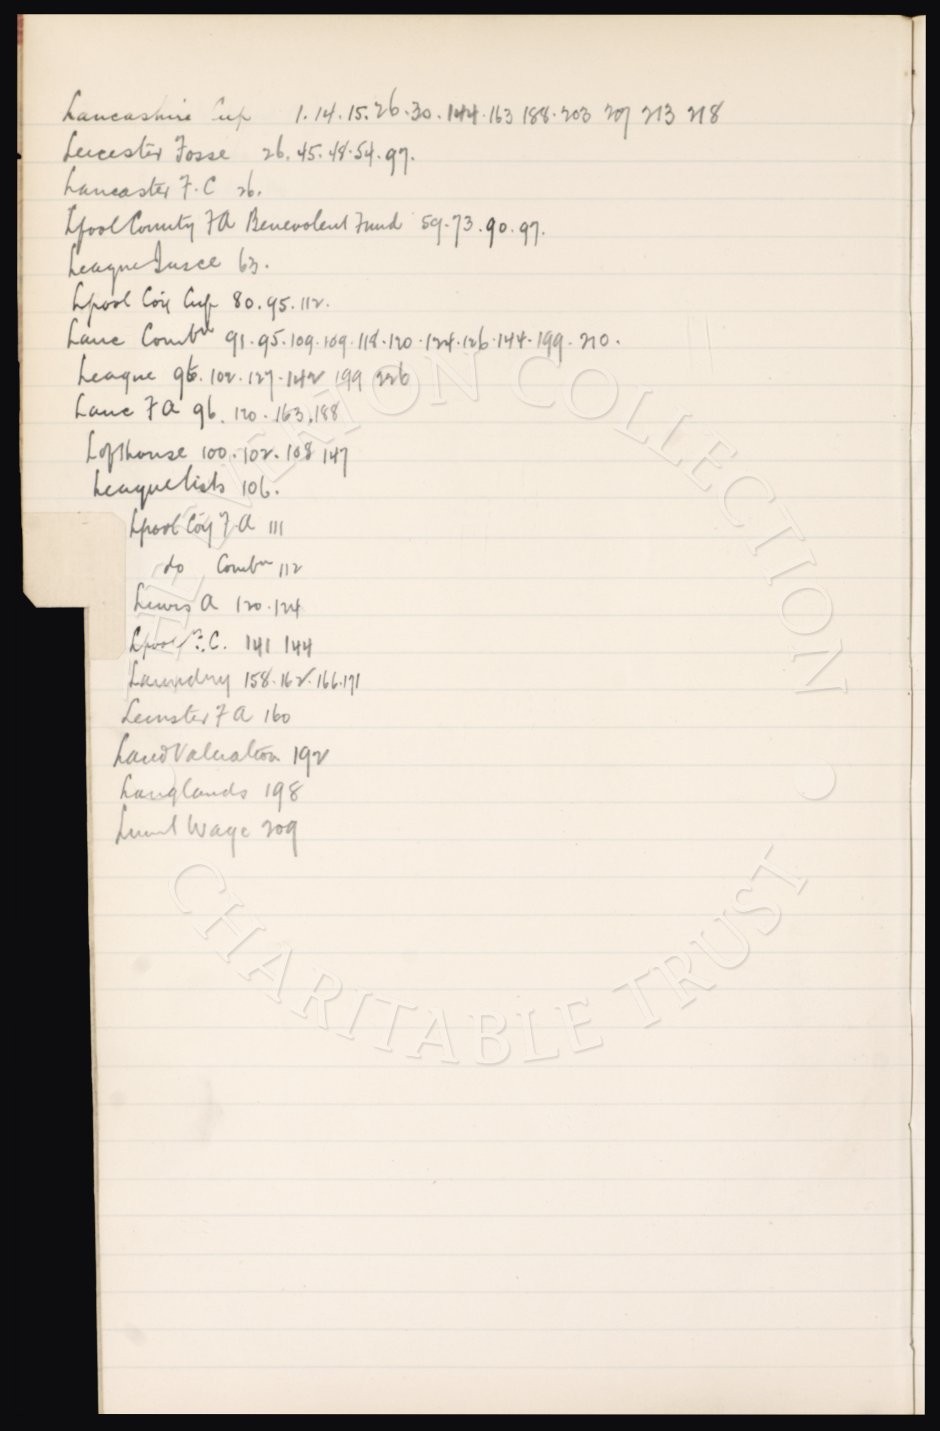 Lancashire Cup 1. 14. 15. 26. 30. 144. 163 188. 203 207 213 218
Leicester Fosse 26. 45. 48. 54. 97.
Lancaster F. C 26.
Lpool County FA Benevolent Fund 59. 73. 90. 97.
League 63.
Lpool Coy Cup 80. 95. 112.
Lanc Combn 91. 95. 109. 109. 118. 120. 124. 126. 144. 199. 210.
League 96. 102. 127. 142 199 226
Lanc F A 96. 120. 163. 188
Lofthouse 100. 102. 108 147
League lists 106.
Lpool Coy F. A 111
do Combn 112
Lewis A 120. 124
Lpool F. C. 141 144
Laundry 158. 162. 166. 171
Leinster F A 160
Land Valuation 192
Langlands 198
Wage 209
THE EVERTON COLLECTION
CHARITABLE TRUST